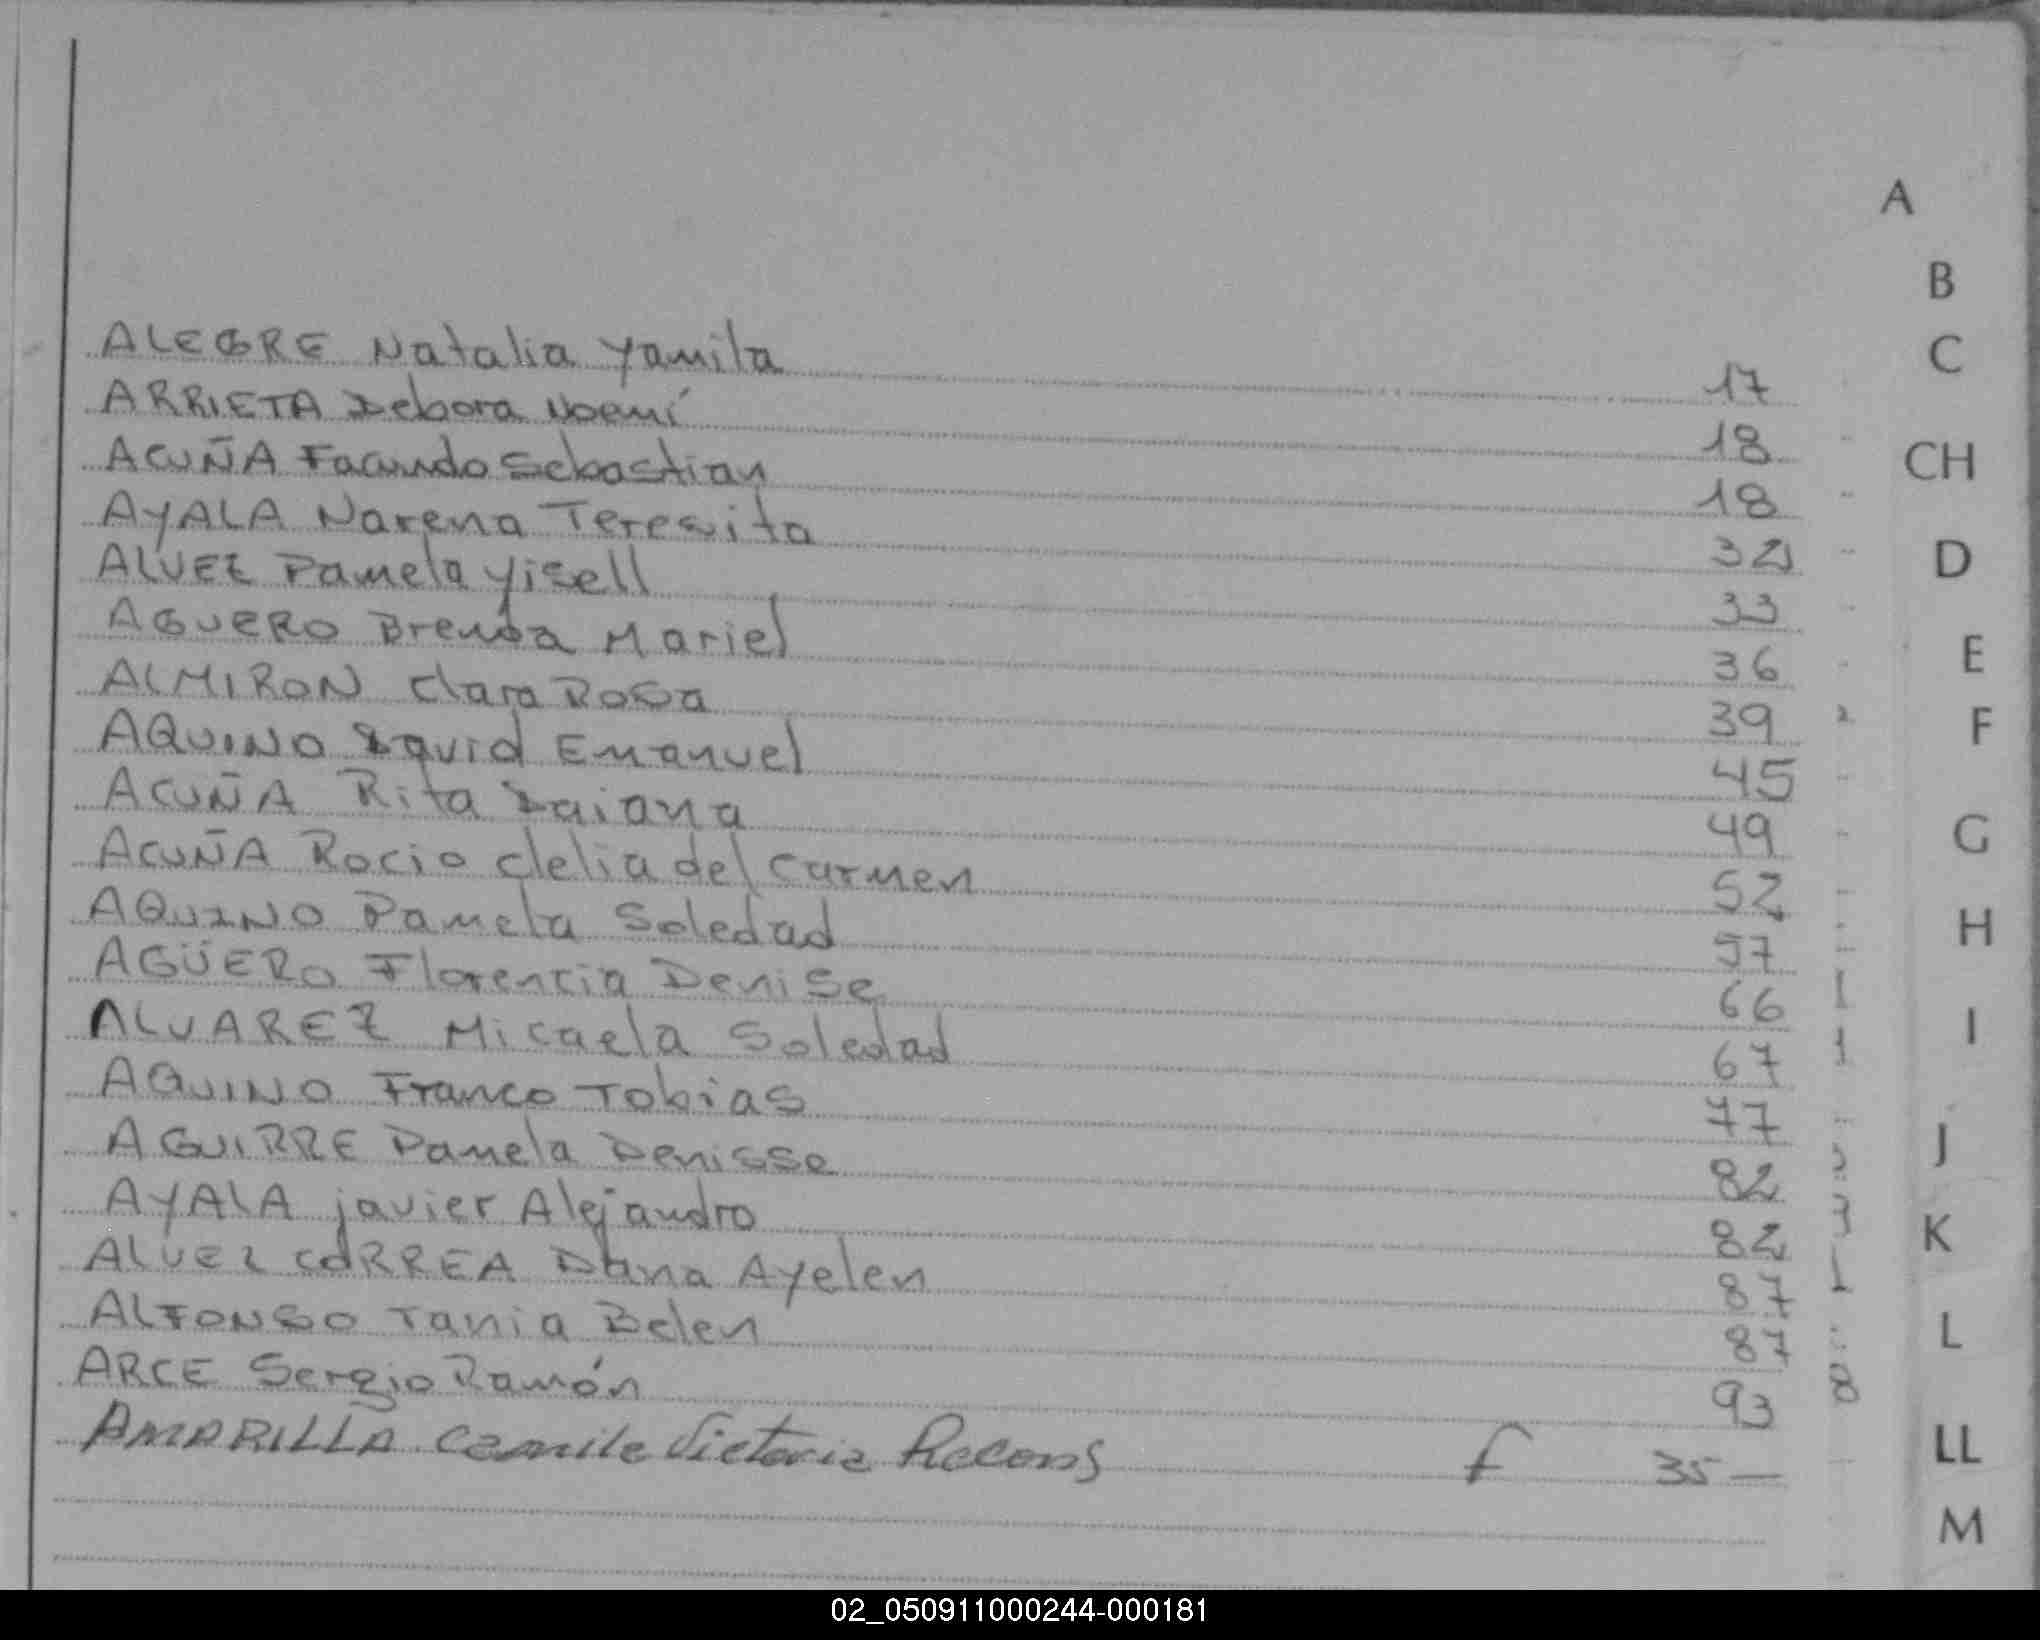 A
B
C
CH
D
E
F
G
H
I
J
K
L
LL
M
ALEGRE Natalia Yamila 17
ARRIETA Debora Noemí 18
ACUÑA Facundo Sebastian 18
AYALA Narena Teresita 32
ALVEZ Pamela Yisell 33
AGUERO Brenda Mariel 36
ALMIRON Clara Rosa 39
AQUINO David Emanuel 45
ACUÑA Rita Daiana 49
ACUÑA Rocio Clelia del Carmen 52
AQUINO Pamela Soledad 57
AGÜERO Florencia Denise 66
ALVAREZ Micaela Soledad 67
AQUINO Franco Tobias 77
AGUIRRE Pamela Denisse 82
AYALA Javier Alejandro 82
ALVEZ CORREA Dana Ayelen 87
ALFONSO Tania Belen 87
ARCE Sergio Ramón 93
AMARILLA Camila Victoria f 35 —
02_050911000244-000181